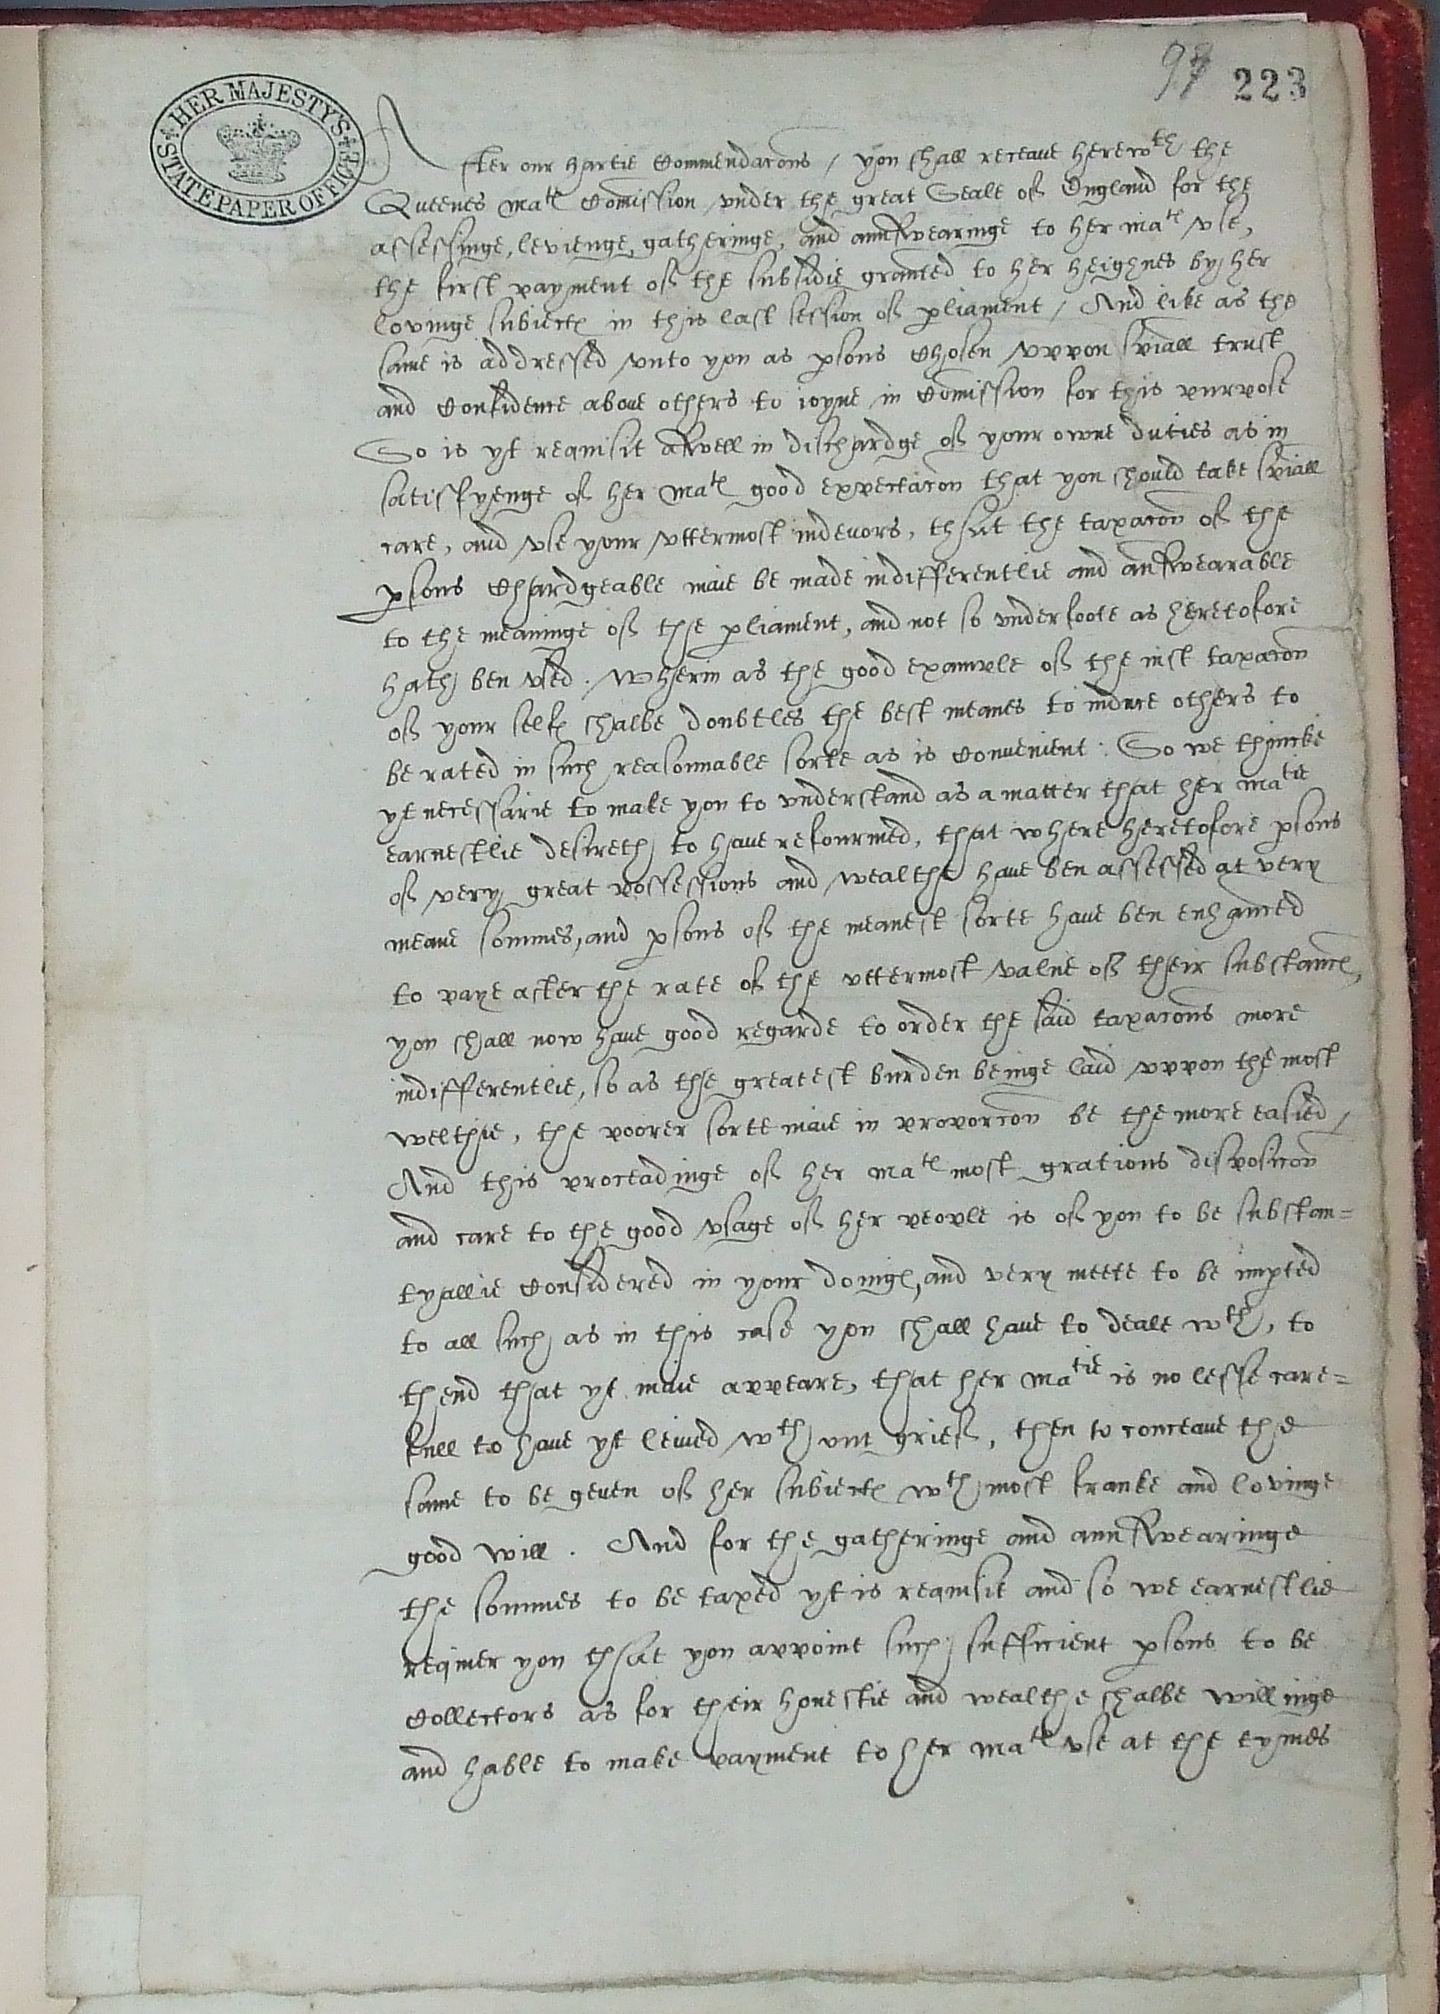 97 223
HER MAJESTY'S
STATE PAPER OFFICE
After our hartie Commendacons / you shall receaue herewth the
Queenes matꝭ Comission vnder the great Seale off England for the
assessinge, levienge, gatheringe, and aunsswearinge to her matꝭ vse,
the first payment off the subsidie graunted to her heighnes by her
lovinge subiectꝭ in this last session off pliament / And like as the
same is addressed vnto you as psons Chosen vppon spiall trust
and Confidence aboue others to ioyne in Comission for this purpose
So is yt requisit aswell in dischardge off your owne duties as in
satisfyenge off her matꝭ good expectacon that you should take spiall
care, and vse your vttermost indevors, that the taxacon off the
psons Chardgeable maie be made indifferentlie and answearable
to the meaninge off the pliament, and not so vnderfoote as heretofore
hath ben vsed. Wherin as the good example off the iust taxacon
off your selfꝭ shalbe doubtles the best meanes to induce others to
be rated in such reasonnable sorte as is Convenient: So we thincke
yt necessarie to make you to vnderstand as a matter that her matie
earnestlie desireth to haue refourmed, that where heretofore psons
off very great possessions and wealthe haue ben assessed at very
meane sommes, and psons off the meanest sorte haue ben enhanced
to paye after the rate off the vttermost value off their substancꝭ,
you shall now haue good regarde to order the said taxacons more
indifferentlie, so as the greatest burden beinge laid vppon the most
welthie, the poorer sorte maie in proporcon be the more easied /
And this proceadinge off her matꝭ most gratious disposicon
and care to the good vsage off her people is off you to be substan=
tyallie Considered in your doingꝭ, and very meete to be impted
to all such as in this case you shall haue to deale wth, to
thend that yt maie appeare, that her matie is no lesse care=
full to haue yt levied wth out grieff, then to conceaue the
same to be geuen off her subiectꝭ wth most franke and lovinge
good will. And for the gatheringe and aunswearinge
the sommes to be taxed yt is requisit and so we earnestlie
requier you that you appoint such sufficient psons to be
Collectors as for their honestie and wealthe shalbe willinge
and hable to make payment to her matꝭ vse at the tymes